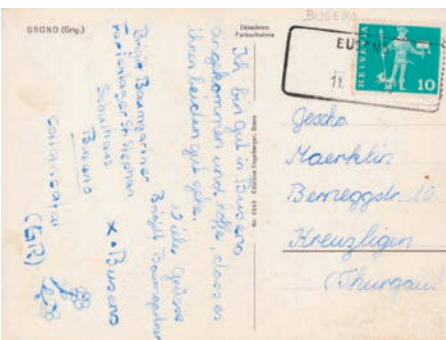 GROND (Grig.)
Ektachrom-
Farbaufnahme
BUSENO
HELVETIA
10
11.
Ich bin gut in Buseno
angekommen und hoffe, dass es
ihnen beiden gut geht.
Viele Grüsse
Brigitt Baumgartner
Brigitt Baumgartner
Ferienlager St. Stephan
Schulhaus
Buseno
Calancatal
(GR)
x = Buseno
Gescha
Maerklin
Berneggstr. 10
Kreuzligen
(Thurgau